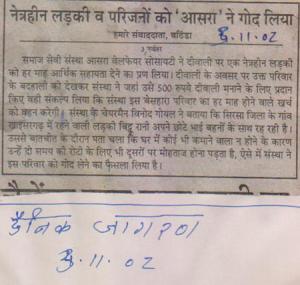 नेत्रहीन लड़की व परिजनों को 'आसरा' ने गोद लिया
हमारे संवाददाता, बठिंडा
6.11.02
3 नवंबर
समाज सेवी संस्था आसरा वेलफेयर सोसायटी ने दीवाली पर एक नेत्रहीन लड़की
को हर माह आर्थिक सहायता देने का प्रण लिया। दीवाली के अवसर पर उक्त परिवार
के बदहाली को देखकर संस्था ने जहां उसे 500 रुपये दीवाली मनाने के लिए प्रदान
किए वही संकल्प लिया कि संस्था इस बेसहारा परिवार का हर माह होने वाले खर्च
को वहन करेगी। संस्था के चेयरमैन विनोद गोयल ने बताया कि सिरसा जिले के गांव
में रहने वाली लड़की बिट्टू रानी अपने छोटे भाई बहनों के साथ रह रही है।
उससे बातचीत के दौरान पता चला कि घर में कोई भी कमाने वाला न होने के कारण
उन्हें दो समय की रोटी के लिए भी दूसरों पर मोहताज होना पड़ता है, ऐसे में संस्था ने
इस परिवार को गोद लेने का फैसला लिया है।
दैनिक जागरण
6.11.02